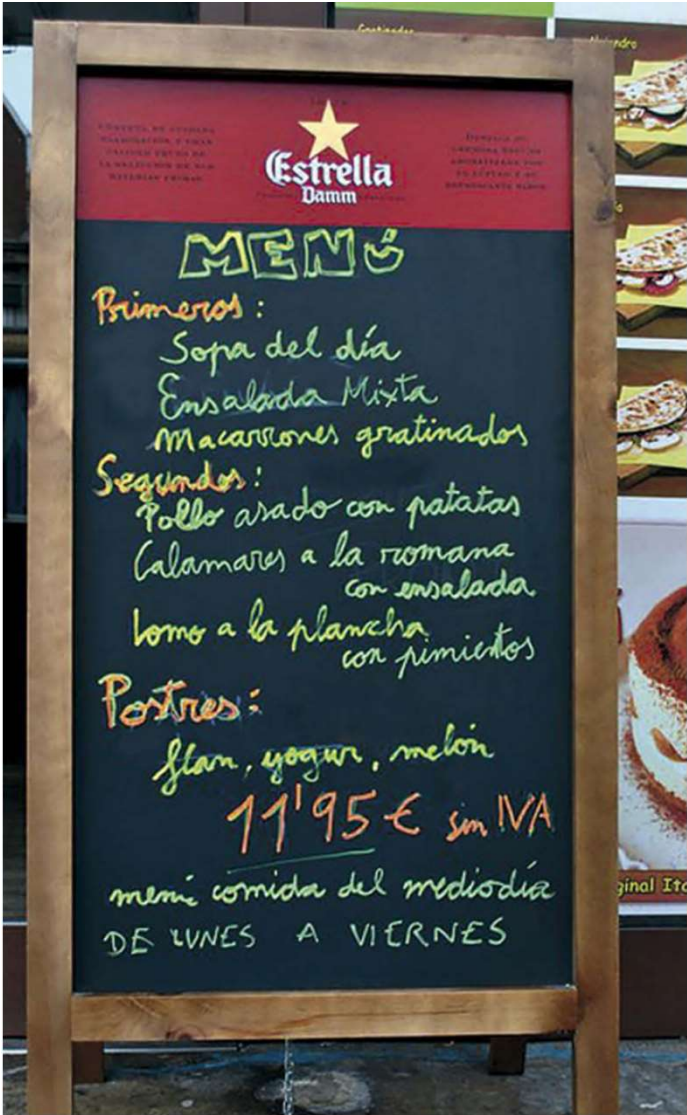 Gratinados
Alejandro
Estrella
Damm
MENÚ
Primeros:
Sopa del día
Ensalada Mixta
Macarrones gratinados
Segundos:
Pollo asado con patatas
Calamares a la romana
con ensalada
Lomo a la plancha
con pimientos
Postres:
flan, yogur, melón
11'95 € sin IVA
menú comida del mediodía
DE LUNES A VIERNES